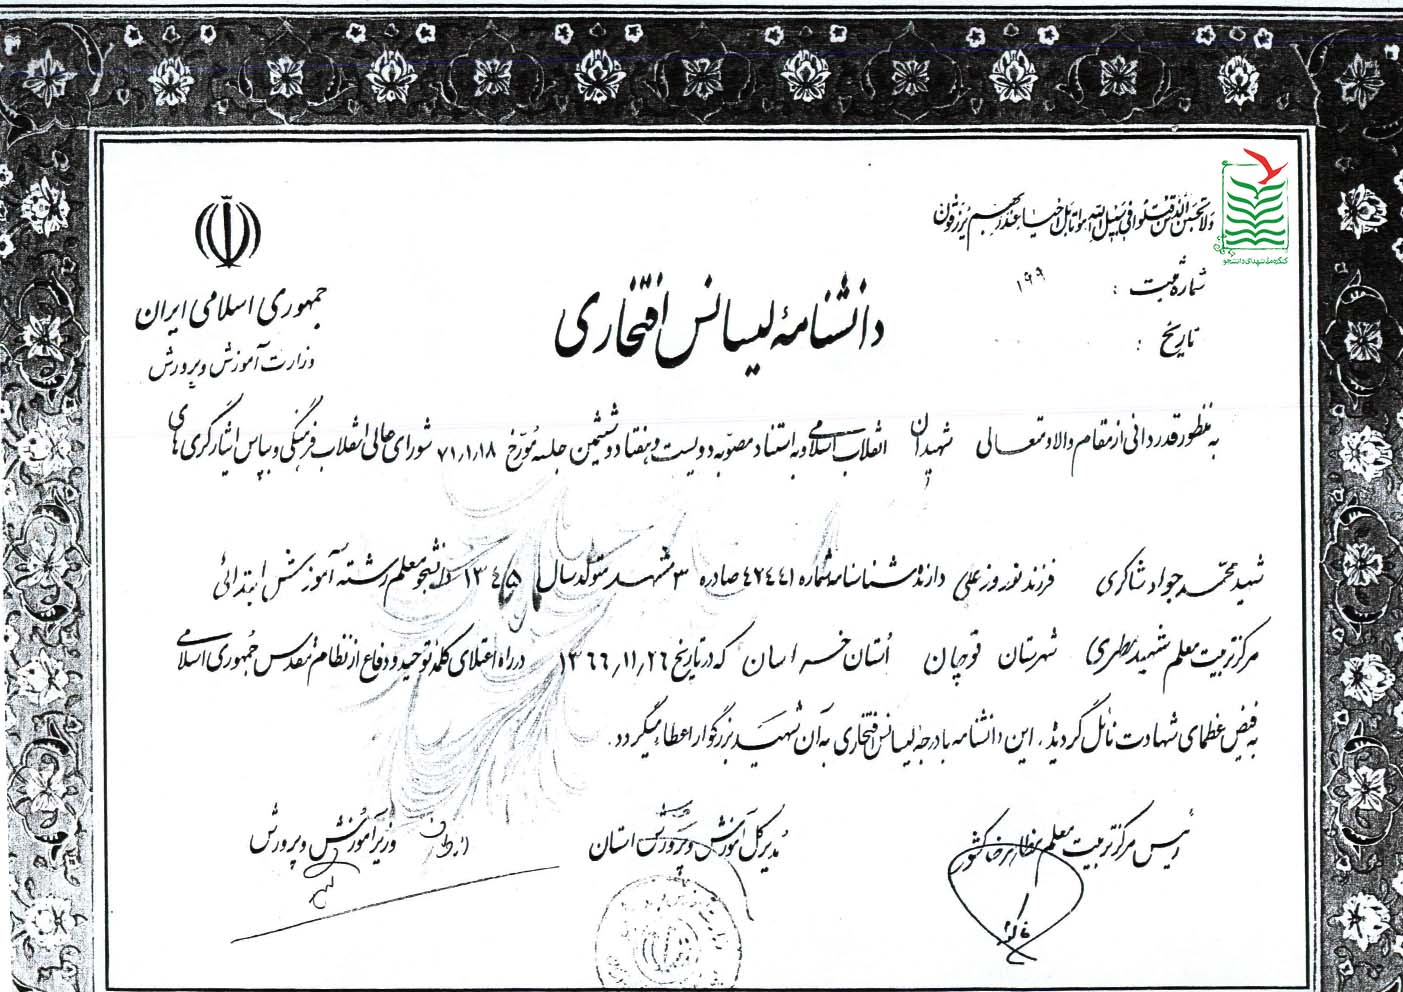 ولا تحسبن الذین قتلوا فی سبیل الله امواتا بل احیاء عند ربهم یرزقون
کنگره ملی شهدای دانشجو
شماره ثبت : ۱۹۹
تاریخ :
جمهوری اسلامی ایران
وزارت آموزش و پرورش
دانشنامهٔ لیسانس افتخاری
به منظور قدردانی از مقام والا و متعالی شهیدان انقلاب اسلامی و به استناد مصوبه دویست و هفتاد و ششمین جلسه مورخ ۷۱٫۱٫۱۸ شورای عالی انقلاب فرهنگی و بپاس ایثارگری های
شهید محمد جواد شاکری فرزند نوروز علی دارنده شناسنامه شماره ۴۲۴۴۱ صادره ۳ مشهد متولد سال ۱۳۴۵ دانشجو معلم رشته آموزش ابتدائی
مرکز تربیت معلم شهید مطهری شهرستان قوچان استان خراسان که در تاریخ ۱۳۶۶٫۱۱٫۲۶ در راه اعتلای کلمه توحید و دفاع از نظام مقدس جمهوری اسلامی
به فیض عظمای شهادت نائل گردیده . این دانشنامه با درجه لیسانس افتخاری به آن شهید بزرگوار اعطاء میگردد .
رئیس مرکز تربیت معلم
مدیر کل آموزش و پرورش استان
از طرف وزیر آموزش و پرورش